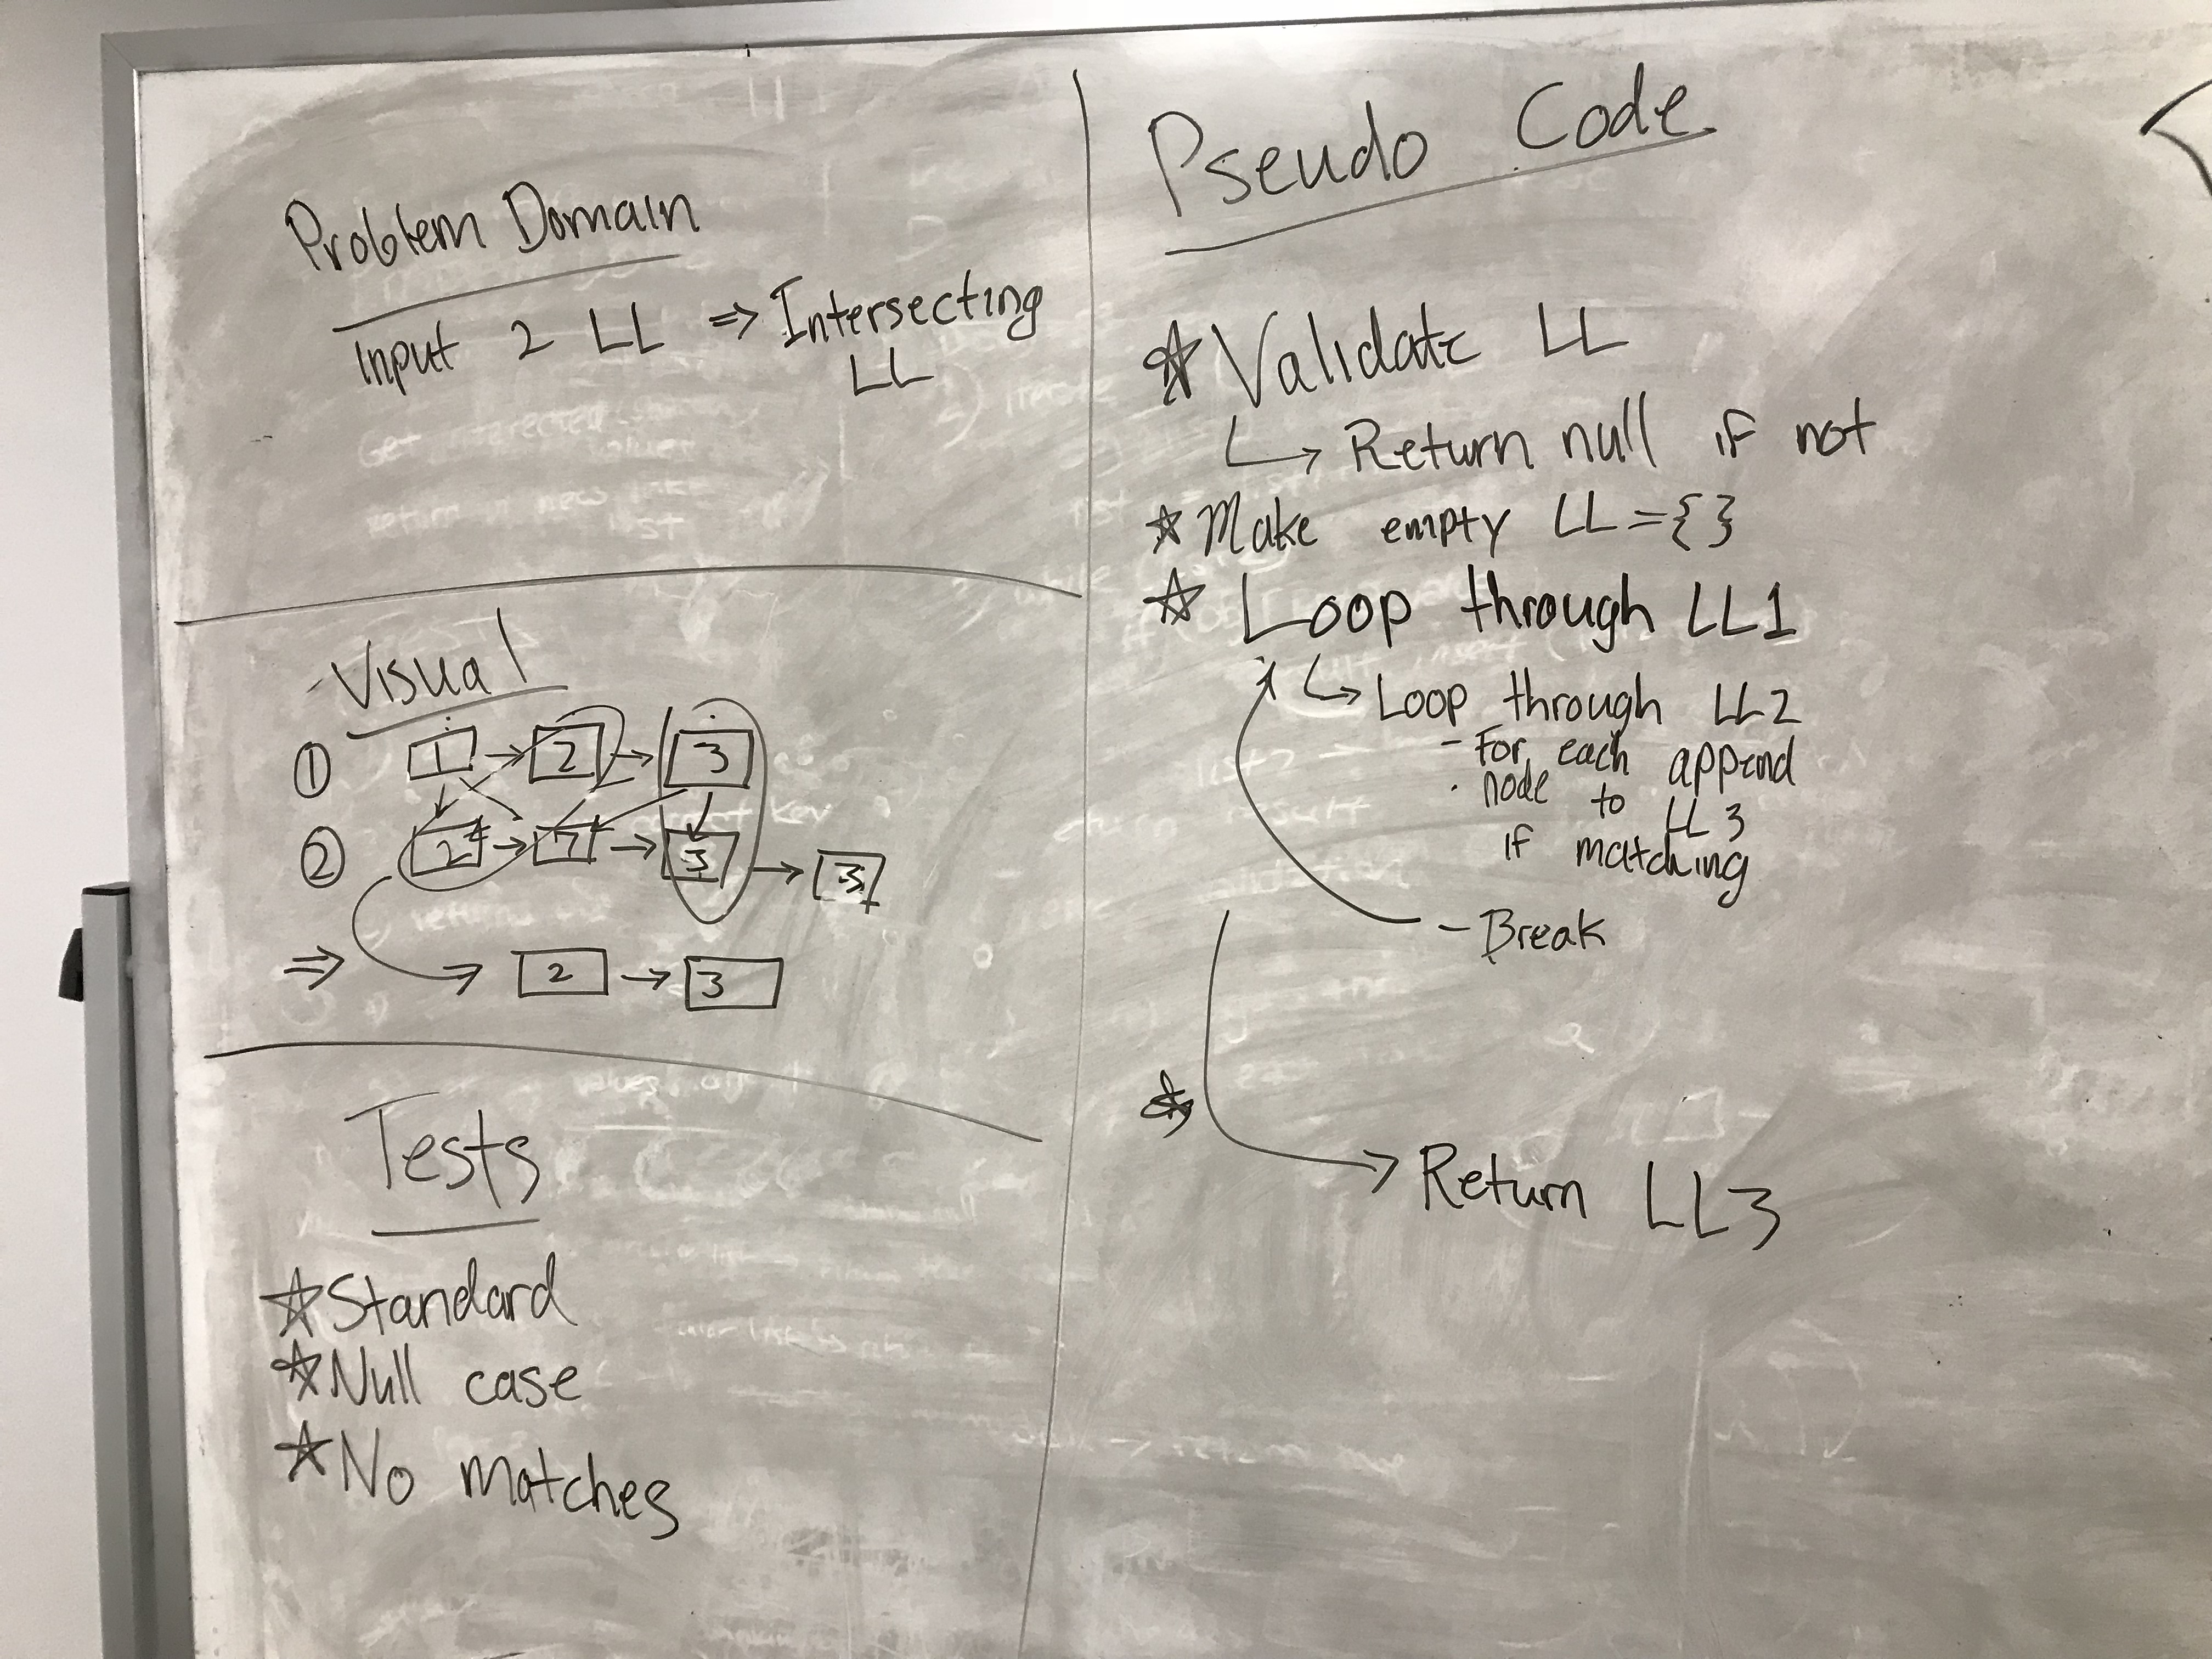 Problem Domain
Input 2 LL ⇒ Intersecting
LL
Visual
① 1 → 2 → 3
② 2 → 7 → 3 → 3
⇒ 2 → 3
Tests
☆ Standard
☆ Null case
☆ No matches
Pseudo Code
☆ Validate LL
↳ Return null if not
☆ Make empty LL = { }
☆ Loop through LL1
↳ Loop through LL2
- For each append
node to LL3
if matching
- Break
☆ → Return LL3